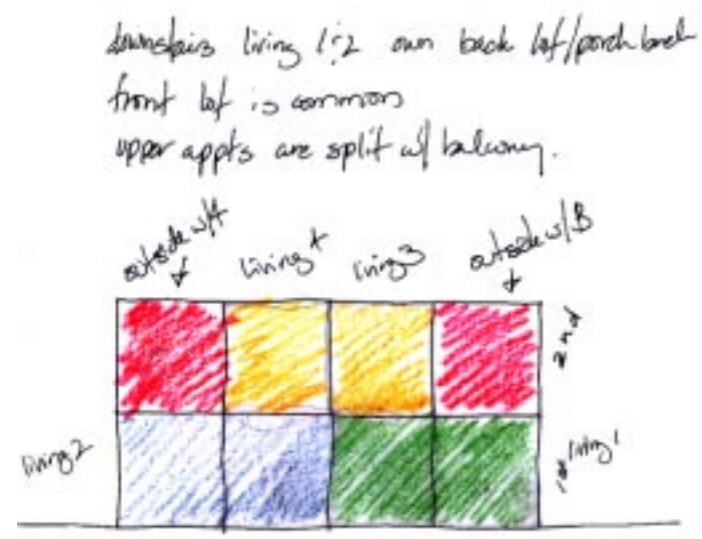 downstairs living 1:2 own back lot/porch
front lot is common
upper appts are split w/ balcony.
outside w/4
living 4
living 3
outside w/B
2nd
living 2
living 1